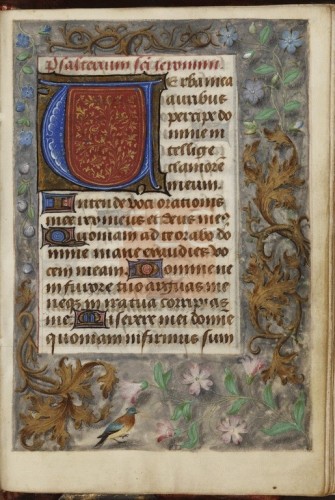 Psalterium sci Jeronimi.
Verba mea
auribus
percipe do
mine in
tellige
clamore
meum.
Intende voci orationis
mee rex meus et deus me9
Quoniam ad te orabo do
mine mane exaudies vo
cem meam. Domine ne
in furore tuo arguas me
neq3 in ira tua corripias
me. Miserere mei domie
quoniam infirmus sum